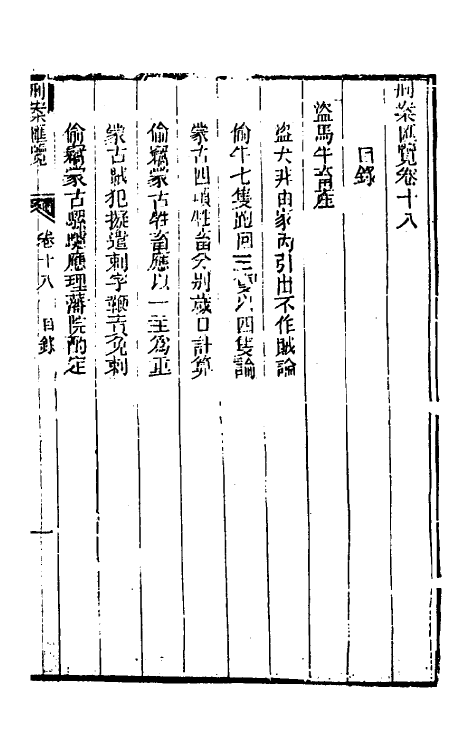 刑案匯覽卷十八
目錄
盜馬牛畜產
盜犬非由家內引出不作賊論
偷牛七隻跑回三隻以四隻論
蒙古四項牲畜分別歲口計算
偷竊蒙古牲畜應以一主為重
蒙古賊犯擬遣刺字鞭責免刺
偷竊蒙古騾應理藩院酌定
刑案匯覽 卷十八 目錄 一